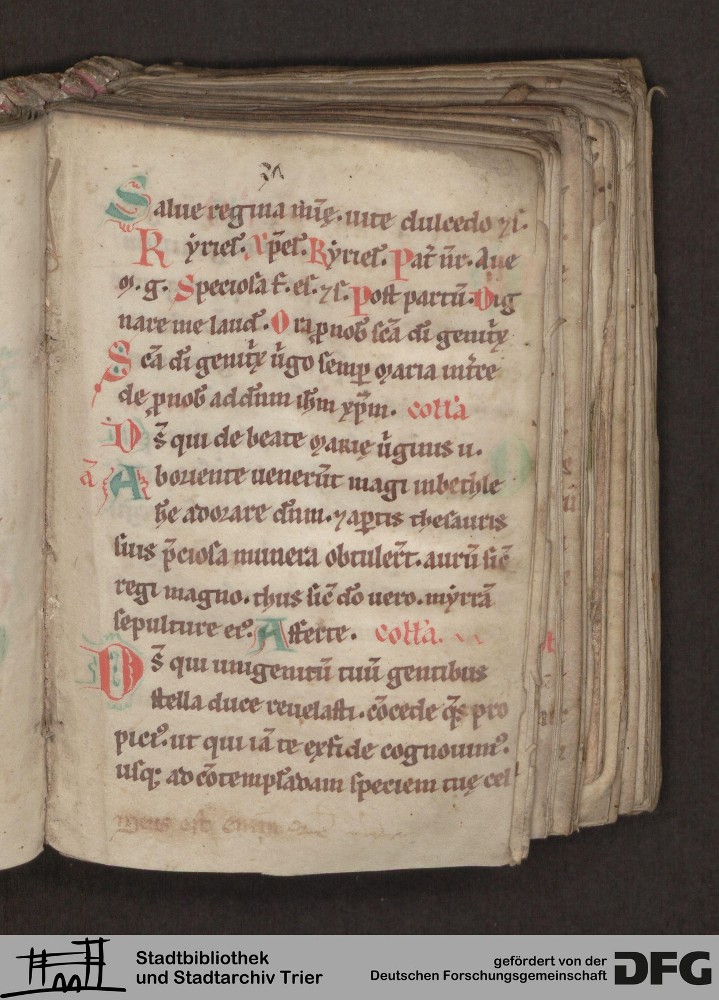 Salue regina mīę. uite dulcedo ⁊ c̄.
Kyriel'. Xp̄el'. Kyriel'. Pat̄ nr̄. Aue
M. g. Speciosa f. es. ⁊ s. Post partū. Dig
nare me laud'. Ora ꝓ nob' scā di genitx̄
Scā di genitx̄ ūgo semꝑ Maria int̄ce
de ꝓ nob' ad dn̄m ihm xp̄m. colła
Ds̄ qui de beate Marię ūginis u.
ā Ab oriente uenerūt magi in bethle
he adorare dn̄m. ⁊ aꝑtis thesauris
suis p̄ciosa munera obtuler̄t. aurū sic̄
regi magno. thus sic̄ do uero. myrrā
sepulture ei'. Afferte. colła.
Ds̄ qui unigenitū tuū gentibus
stella duce reuelasti. cōcede q̄s pro
pici'. ut qui iā te ex fide cognouim'.
usq; ad cōtemplādam speciem tuę cel
Stadtbibliothek
und Stadtarchiv Trier
gefördert von der
Deutschen Forschungsgemeinschaft
DFG